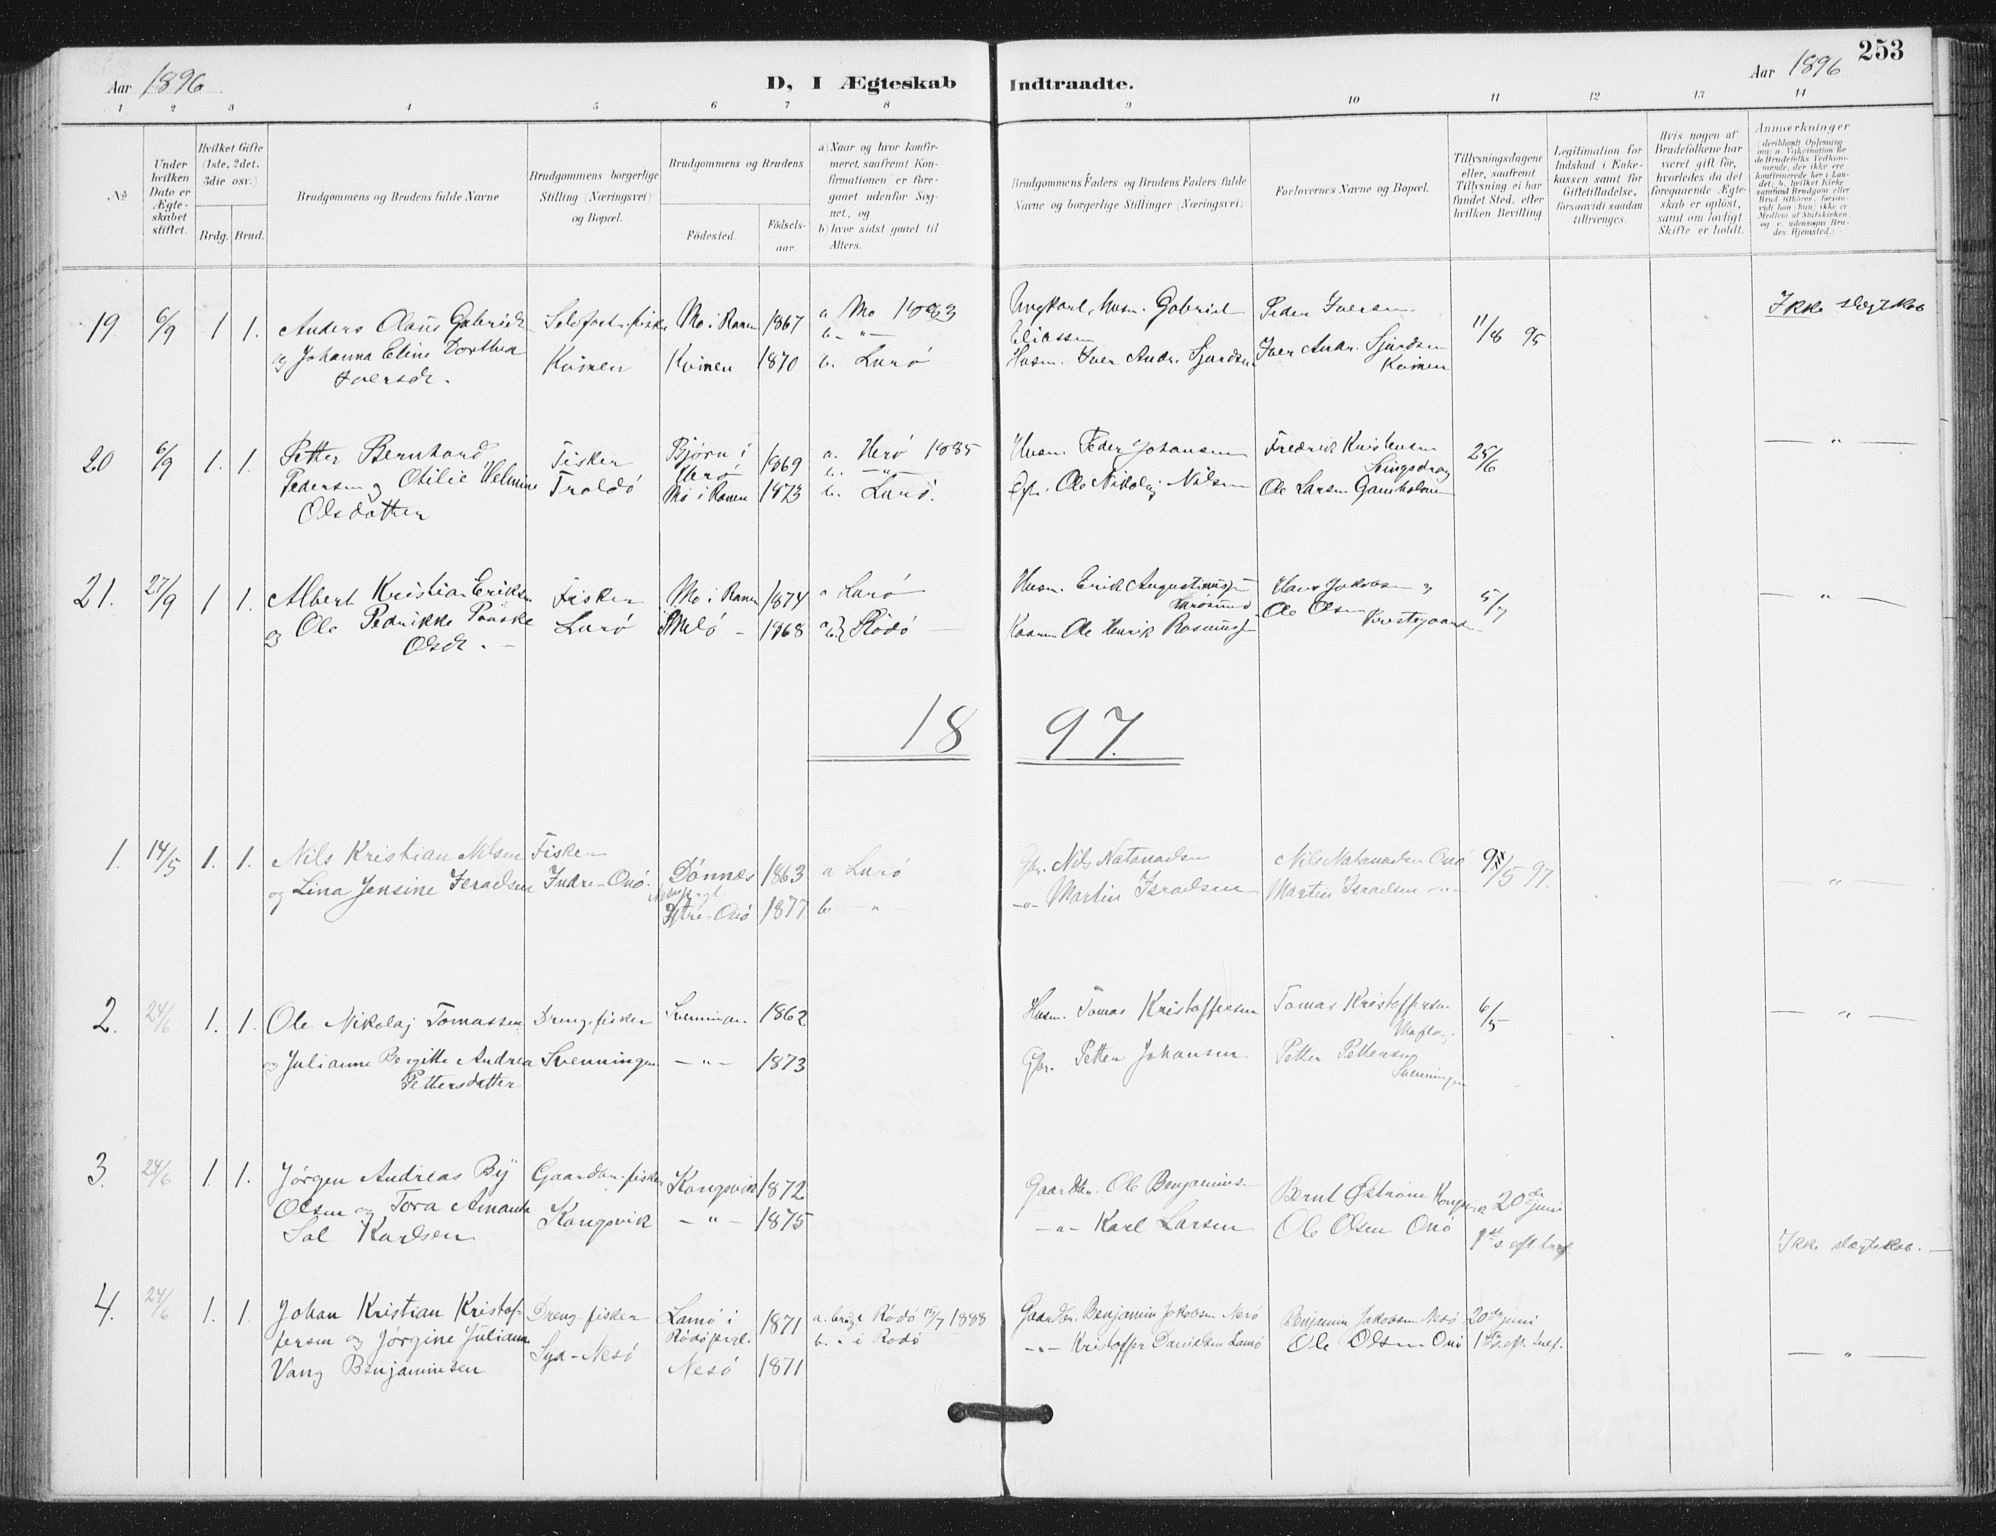 Aar 1896
D, I Ægteskab Indtraadte.
Aar 1896
253
1 2 3 4 5 6 7 8 9 10 11 12 13 14
No
Under hvilken Dato er Ægteskabet stiftet.
Hvilket Gifte (1ste, 2det, 3die osv.)
Brdg. Brud.
Brudgommens og Brudens fulde Navne
Brudgommens borgerlige Stilling (Næringsvei) og Bopæl.
Brudgommens og Brudens
Fødested.
Fødselsaar.
a) Naar og hvor konfirmeret, saafremt Konfirmationen er foregaaet udenfor Sognet, og
b) hvor sidst gaaet til Alters.
Brudgommens Faders og Brudens Faders fulde Navne og borgerlige Stillinger (Næringsvei)
Forlovernes Navne og Bopæl.
Tillysningsdagene eller, saafremt Tillysning ei har fundet Sted, efter hvilken Bevilling
Legitimation for Indskud i Enkekassen samt for Giftetilladelse, forsaavidt saadan tiltrænges.
Hvis nogen af Brudefolkene har været gift før, hvorledes da det foregaaende Ægteskab er opløst, samt om lovligt Skifte er holdt.
Anmærkninger
19. 6/9 1 1. Anders Olaus Gabriels. Mo i Ranen 1867 a Mo 1883
b. -"-
og Johanna Eline Dorthea Kvinen Kvinen 1870 b. Lurö
Iversdr.
Husm. Gabriel Eliassen Peder Iversen 11/8 95 Ikke slegtskab
Husm. Iver Andr. Sjurdsen Iver Andr. Sjurdsen
Kvinen
20 6/9 1. 1. Petter Bernhard Fisker Bjørn i Herø 1869 a. Herø 1885
b. -"-
Pedersen og Otilie Helmine Traldö Mo i Ranen 1873 b. Lurö.
Olsdatter
Husm. Peder Johansen Fredrik Kristensen 25/6 — " —
Ole Nikolaj Nilsen Ole Larsen
21. 27/9 1 1. Albert Kristian Eriksen Fisker Mo i Ranen 1874 a Lurö
og Ole Pedrikke Lurö — 1868 a b} Rödö —
Olsdr. —
Husm. Erik Augustinussen Hans Jakobsen og 5/7 — " —
Lurösund
Ole Henrik Rasmussen Ole Olsen
18 97.
1. 14/5 1. 1. Nils Kristian Nilsen Fisker Dönnes 1863 a Lurö
og Lina Jensine Israelsen Indre-Onö. Ytre-Onö 1877 b. — " —
Gbr. Nils Natanaelsen Nils Natanaelsen Onö 9/5 97. — " —
-"- Martin Israelsen Martin Israelsen -"-
2. 24/6 1. 1. Ole Nikolaj Tomassen Dreng-fisker Svenningen 1862
og Julianne Bergitte Andrea Svenningen — " — 1873
Pettersdatter
Husm. Tomas Kristoffersen Tomas Kristoffersen 6/5 — " —
Gbr. Petter Johansen Petter Pettersen
Svenningen
3. 24/6 1. 1. Jörgen Andreas Bÿ Gaardbr.-fisker Kongsvik 1872
Olsen og Tora Amanda Kongsvik — " — 1875
Sol Karlsen
Gaardbr. Ole Benjaminsen Bernt Öström Kongsvik 20de juni
-"- Karl Larsen Ole Olsen Onö
Ikke slegtskab. —
4. 24/6 1. 1. Johan Kristian Kristof- Dreng-fisker Lamö i 1871 a. brdg. i Rödö 15/7 1888
fersen og Jörgine Juliane Rödö prgl. b. - i Rödö
Vang Benjaminsen Syd-Nesö Nesö 1871
Gaardbr. Benjamin Jakobsen Nesö Benjamin Jakobsen Nesö 20de juni
-"- Kristoffer Danielsen Lamö Ole Olsen Onö
— " —